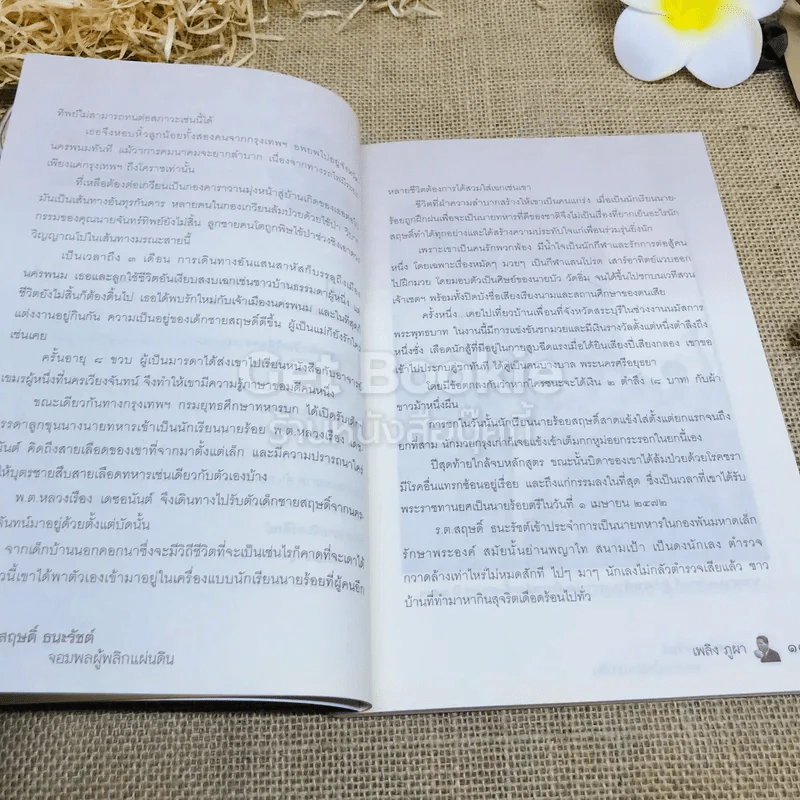 ทิพย์ไม่สามารถทนต่อสภาวะเช่นนี้ได้
เธอจึงหอบหิ้วลูกน้อยทั้งสองคนจากกรุงเทพฯ อพยพไปอยู่จังหวัด
นครพนมทันที แม้ว่าการคมนาคมจะยากลำบาก เนื่องจากทางรถไฟมี
เพียงแค่กรุงเทพฯ ถึงโคราชเท่านั้น
ที่เหลือต้องต่อเกวียนเป็นกองคาราวานมุ่งหน้าสู่บ้านเกิดของเธอ
มันเป็นเส้นทางอันทุรกันดาร หลายคนในกองเกวียนล้มป่วยด้วยไข้ป่า
กรรมของคุณนายจันทร์ทิพย์ยังไม่สิ้น ลูกชายคนโตถูกพิษไข้ป่าช่วงชิงเอาดวง
วิญญาณไปในเส้นทางมรณะสายนี้
เป็นเวลาถึง ๓ เดือน การเดินทางอันแสนสาหัสก็บรรลุถึงเมือง
นครพนม เธอและลูกใช้ชีวิตอันเงียบสงบเฉกเช่นชาวบ้านธรรมดาผู้หนึ่ง
ชีวิตยังไม่สิ้นก็ต้องดิ้นไป เธอได้พบรักใหม่กับเจ้าเมืองนครพนม และในที่สุดก็
แต่งงานอยู่กินกัน ความเป็นอยู่ของเด็กชายสฤษดิ์ดีขึ้น ผู้เป็นแม่ก็ยังรักใคร่
เช่นเคย
ครั้นอายุ ๘ ขวบ ผู้เป็นมารดาได้ส่งเขาไปเรียนหนังสือกับอาจารย์
เขมรผู้หนึ่งที่นครเวียงจันทน์ จึงทำให้เขามีความรู้ภาษาของมันดีคนหนึ่ง
ขณะเดียวกันทางกรุงเทพฯ กรมยุทธศึกษาทหารบก ได้เปิดรับเด็ก
รรดาลูกขุนนางนายทหารเข้าเป็นนักเรียนนายร้อย ร.ต.หลวงเรือง เดช
นันต์ คิดถึงสายเลือดของเขาที่จากมาตั้งแต่เล็ก และมีความปรารถนาใคร่
ให้บุตรชายสืบสายเลือดทหารเช่นเดียวกับตัวเองบ้าง
พ.ต.หลวงเรือง เดชอนันต์ จึงเดินทางไปรับตัวเด็กชายสฤษดิ์จากนคร
จันทน์มาอยู่ด้วยตั้งแต่บัดนั้น
จากเด็กบ้านนอกคอกนาซึ่งจะมีวิถีชีวิตที่จะเป็นเช่นไรก็คาดที่จะเดาได้
วนี้เขาได้พาตัวเองเข้ามาอยู่ในเครื่องแบบนักเรียนนายร้อยที่ผู้คนอีก
สฤษดิ์ ธนะรัชต์
จอมพลผู้พลิกแผ่นดิน
หลายชีวิตต้องการได้สวมใส่เฉกเช่นเขา
ชีวิตที่ฝ่าความลำบากสร้างให้เขาเป็นคนแกร่ง เมื่อเป็นนักเรียนนาย-
ร้อยถูกฝึกฝนเพื่อจะเป็นนายทหารที่ดีของชาติจึงไม่เป็นเรื่องที่ยากเย็นอะไรนัก
สฤษดิ์ทำได้ทุกอย่างและได้สร้างความประทับใจแก่เพื่อนร่วมรุ่นยิ่งนัก
เพราะเขาเป็นคนรักพวกพ้อง มีน้ำใจเป็นนักกีฬาและรักการต่อสู้คน
หนึ่ง โดยเฉพาะเรื่องหมัดๆ มวยๆ เป็นกีฬาแสนโปรด เสาร์อาทิตย์แวบออก
ไปฝึกมวย โดยมอบตัวเป็นศิษย์ของนายบัว วัดอิ่ม จนได้ขึ้นไปชกบนเวทีสวน
เจ้าเชตฯ พร้อมทั้งปิดบังชื่อเสียงเรียงนามและสถานศึกษาของตนเสีย
ครั้งหนึ่ง เคยไปเที่ยวบ้านเพื่อนที่จังหวัดสระบุรีในช่วงงานนมัสการ
พระพุทธบาท ในงานนี้มีการแข่งขันชกมวยและมีเงินรางวัลตั้งแต่หนึ่งตำลึงถึง
หนึ่งชั่ง เลือดนักสู้ที่มีอยู่ในกายสูบฉีดแรงเมื่อได้ยินเสียงปี่เสียงกลอง เขาขอ
เข้าไปประกบคู่ชกทันที ได้คู่เป็นคนบางบาล พระนครศรีอยุธยา
โดยมีข้อตกลงกันว่าหากใครชนะจะได้เงิน ๒ ตำลึง (๘ บาท) กับผ้า
ขาวม้าหนึ่งผืน
การชกในวันนั้นนักเรียนนายร้อยสฤษดิ์สาดแข้งใส่ตั้งแต่ยกแรกจนถึง
ยกที่สาม นักมวยกรุงเก่าก็เจอแข้งเข้าเต็มกกหูม่อยกระรอกในยกนี้เอง
ปีสุดท้ายใกล้จบหลักสูตร ขณะนั้นบิดาของเขาได้ล้มป่วยด้วยโรคชรา
มีโรคอื่นแทรกซ้อนอยู่เรื่อย และถึงแก่กรรมลงในที่สุด ซึ่งเป็นเวลาที่เขาได้รับ
พระราชทานยศเป็นนายร้อยตรีในวันที่ ๑ เมษายน ๒๔๗๒
ร.ต.สฤษดิ์ ธนะรัชต์เข้าประจำการเป็นนายทหารในกองพันมหาดเล็ก
รักษาพระองค์ สมัยนั้นย่านพญาไท สนามเป้า เป็นดงนักเลง ตำรวจ
กวาดล้างเท่าไหร่ไม่หมดสักที ไปๆ มาๆ นักเลงไม่กลัวตำรวจเสียแล้ว ชาว
บ้านที่ทำมาหากินสุจริตเดือดร้อนไปทั่ว
เพลิง ภูผา
Get Books
ร้านหนังสือเก็ทบุ๊คนี้